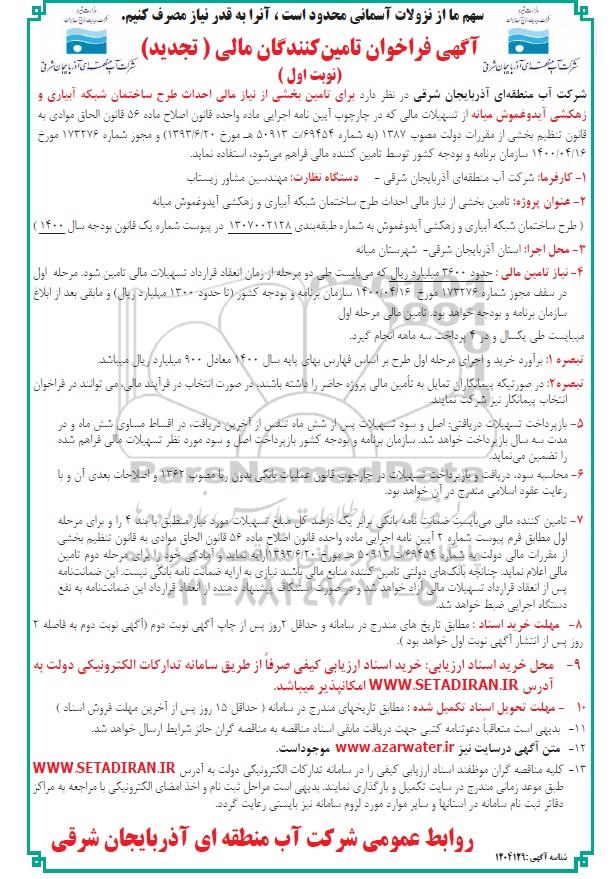 سهم ما از نزولات آسمانی محدود است ، آنرا به قدر نیاز مصرف کنیم.
آگهی فراخوان تامین‌کنندگان مالی ( تجدید)
(نوبت اول )
شرکت آب منطقه‌ای آذربایجان شرقی
شرکت آب منطقه‌ای آذربایجان شرقی
شرکت آب منطقه‌ای آذربایجان شرقی در نظر دارد برای تامین بخشی از نیاز مالی احداث طرح ساختمان شبکه آبیاری و
زهکشی آیدوغموش میانه از تسهیلات مالی که در چارچوب آیین نامه اجرایی ماده واحده قانون اصلاح ماده ۵۶ قانون الحاق موادی به
قانون تنظیم بخشی از مقررات دولت مصوب ۱۳۸۷ (به شماره ۶۹۴۵۴/ت ۵۰۹۱۳ هـ مورخ ۱۳۹۳/۶/۲۰) و مجوز شماره ۱۷۳۲۷۶ مورخ
۱۴۰۰/۰۴/۱۶ سازمان برنامه و بودجه کشور توسط تامین کننده مالی فراهم می‌شود، استفاده نماید.
۱- کارفرما: شرکت آب منطقه‌ای آذربایجان شرقی - دستگاه نظارت: مهندسین مشاور زیستاب
۲- عنوان پروژه: تامین بخشی از نیاز مالی احداث طرح ساختمان شبکه آبیاری و زهکشی آیدوغموش میانه
( طرح ساختمان شبکه آبیاری و زهکشی آیدوغموش به شماره طبقه‌بندی ۱۳۰۷۰۰۲۱۲۸ در پیوست شماره یک قانون بودجه سال ۱۴۰۰ )
۳- محل اجرا: استان آذربایجان شرقی- شهرستان میانه
۴- نیاز تامین مالی : حدود ۳۶۰۰ میلیارد ریال که می‌بایست طی دو مرحله از زمان انعقاد قرارداد تسهیلات مالی تامین شود. مرحله اول
در سقف مجوز شماره ۱۷۳۲۷۶ مورخ ۱۴۰۰/۰۴/۱۶ سازمان برنامه و بودجه کشور (تا حدود ۱۳۰۰ میلیارد ریال) و مابقی بعد از ابلاغ
سازمان برنامه و بودجه خواهد بود. تامین مالی مرحله اول
میبایست طی یکسال و در ۴ پرداخت سه ماهه انجام گیرد.
تبصره ۱: برآورد خرید و اجرای مرحله اول طرح بر اساس فهارس بهای پایه سال ۱۴۰۰ معادل ۹۰۰ میلیارد ریال میباشد.
تبصره۲: در صورتیکه پیمانکاران تمایل به تأمین مالی پروژه حاضر را داشته باشند، در صورت انتخاب در فرآیند مالی، می توانند در فراخوان
انتخاب پیمانکار نیز شرکت نمایند.
۵- بازپرداخت تسهیلات دریافتی: اصل و سود تسهیلات پس از شش ماه تنفس از آخرین دریافت، در اقساط مساوی شش ماه و در
مدت سه سال بازپرداخت خواهد شد. سازمان برنامه و بودجه کشور بازپرداخت اصل و سود مورد نظر تسهیلات مالی فراهم شده
را تضمین می‌نماید.
۶- محاسبه سود، دریافت و بازپرداخت تسهیلات در چارچوب قانون عملیات بانکی بدون ربا مصوب ۱۳۶۲ و اصلاحات بعدی آن و با
رعایت عقود اسلامی مندرج در آن خواهد بود.
۷- تامین کننده مالی می‌بایست ضمانت نامه بانکی برابر یک درصد کل مبلغ تسهیلات مورد نیاز منطبق با بند ۴ را و برای مرحله
اول مطابق فرم پیوست شماره ۲ آیین نامه اجرایی ماده واحده قانون اصلاح ماده ۵۶ قانون الحاق موادی به قانون تنظیم بخشی
از مقررات مالی دولت به شماره ۶۹۴۵۴/ت ۵۰۹۱۳ هـ مورخ ۱۳۹۳/۶/۲۰ ارائه نماید و آمادگی خود را برای مرحله دوم تامین
مالی اعلام نماید. چنانچه بانک‌های دولتی تامین کننده منابع مالی باشند نیازی به ارایه ضمانت نامه بانکی نیست. این ضمانت‌نامه
پس از انعقاد قرارداد تسهیلات مالی آزاد خواهد شد و در صورت استنکاف پیشنهاد دهنده از انعقاد قرارداد این ضمانت‌نامه به نفع
دستگاه اجرایی ضبط خواهد شد.
۸- مهلت خرید اسناد : مطابق تاریخ های مندرج در سامانه و حداقل ۲روز پس از چاپ آگهی نوبت دوم (آگهی نوبت دوم به فاصله ۲
روز پس از انتشار آگهی نوبت اول خواهد بود ).
۹- محل خرید اسناد ارزیابی: خرید اسناد ارزیابی کیفی صرفاً از طریق سامانه تدارکات الکترونیکی دولت به
آدرس WWW.SETADIRAN.IR امکانپذیر میباشد.
۱۰ - مهلت تحویل اسناد تکمیل شده : مطابق تاریخهای مندرج در سامانه ( حداقل ۱۵ روز پس از آخرین مهلت فروش اسناد )
۱۱- بدیهی است متعاقباً دعوتنامه کتبی جهت دریافت مابقی اسناد مناقصه به مناقصه گران حائز شرایط ارسال خواهد شد.
۱۲- متن آگهی درسایت نیز www.azarwater.ir موجوداست.
۱۳- کلیه مناقصه گران موظفند اسناد ارزیابی کیفی را در سامانه تدارکات الکترونیکی دولت به آدرس WWW.SETADIRAN.IR
طبق موعد زمانی مندرج در سایت تکمیل و بارگذاری نمایند. بدیهی است مراحل ثبت نام و اخذ امضای الکترونیکی با مراجعه به مراکز
دفاتر ثبت نام سامانه در استانها و سایر موارد مورد لزوم سامانه نیز بایستی رعایت گردد.
روابط عمومی شرکت آب منطقه ای آذربایجان شرقی
شناسه آگهی :۱۲۰۴۱۲۹